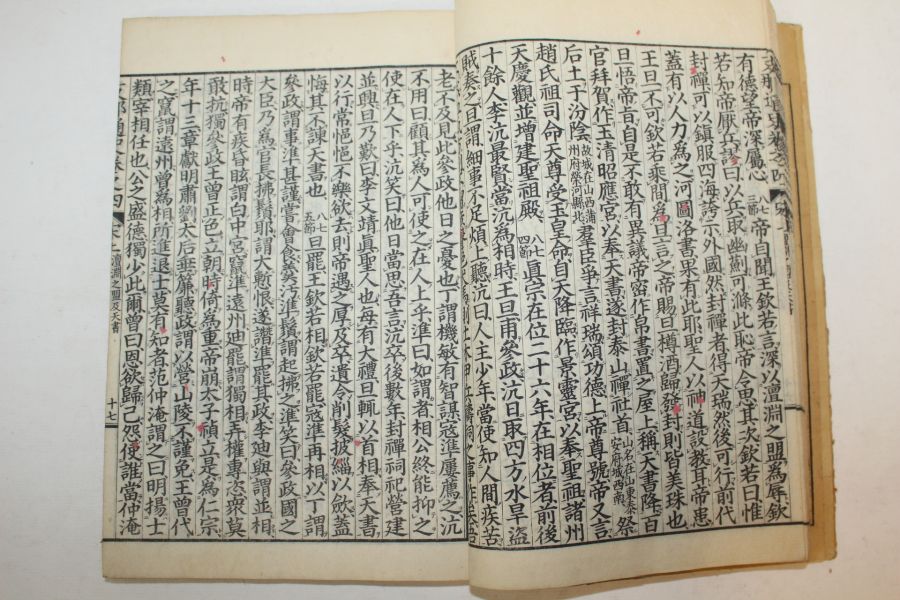 支那通史卷之四
有德望帝深屬心 八七三節 帝自聞王欽若言深以澶淵之盟爲辱欽
若知帝厭兵謬曰以兵取幽薊可滌此恥帝令思其次欽若曰惟
封禪可以鎭服四海誇示外國然封禪者得天瑞然後可行前代
蓋有以人力爲之河圖洛書果有此耶聖人以神道設教耳帝患
王旦不可欽若乘間爲旦言之帝賜旦樽酒歸發封則皆美珠也
旦悟帝旨自是不敢有異議帝密作帛書置之屋上稱天書降百
官拜賀作玉清昭應宮以奉天書遂封泰山禪社首 山名在山東泰安府城西南 祭
后土于汾陰 故城在山西蒲州府榮河縣北 羣臣爭言祥瑞頌功德上帝尊號帝又言
趙氏祖司命天尊受玉皇命自天降臨作景靈宮以奉聖祖諸州
天慶觀並增建聖祖殿 八七四節 眞宗在位二十六年在相位者前後
十餘人李沆最賢當沆爲相時王旦甫參政沆日取四方水旱盜
賊奏之旦謂細事不足煩上聽沆曰人主少年當使知人間疾苦
老不及見此參政他日之憂也丁謂機敏有智謀寇準屢薦之沆
不用曰顧其爲人可使之在人上乎準曰如謂者相公終能抑之
使在人下乎沆笑曰他日當思吾言沆卒後數年封禪祠祀營建
並興旦乃歎曰李文靖眞聖人也每有大禮旦輒以首相奉天書
以行常悒悒不樂欲去則帝遇之厚及卒遺令削髮披緇以斂蓋
悔其不諫天書也 八七五節 旦罷王欽若相欽若罷寇準再相以丁謂
參政謂事準甚謹嘗會食羹汚準鬚謂起拂之準笑曰參政國之
大臣乃爲官長拂鬚耶謂大慙恨遂譖準罷其政李迪與謂並相
時帝有疾昏眩謂白中宮竄準遠州迪罷謂獨相弄權專恣衆莫
敢抗獨參政王曾正色立朝時倚爲重帝崩太子禎立是爲仁宗
年十三章獻明肅劉太后垂簾聽政謂以營山陵不謹免王曾代
之竄謂遠州曾爲相所進退士莫有知者范仲淹謂之曰明揚士
類宰相任也公之盛德獨少此爾曾曰恩欲歸己怨使誰當仲淹
支那通史卷之四 宋上 澶淵之盟及天書 十七